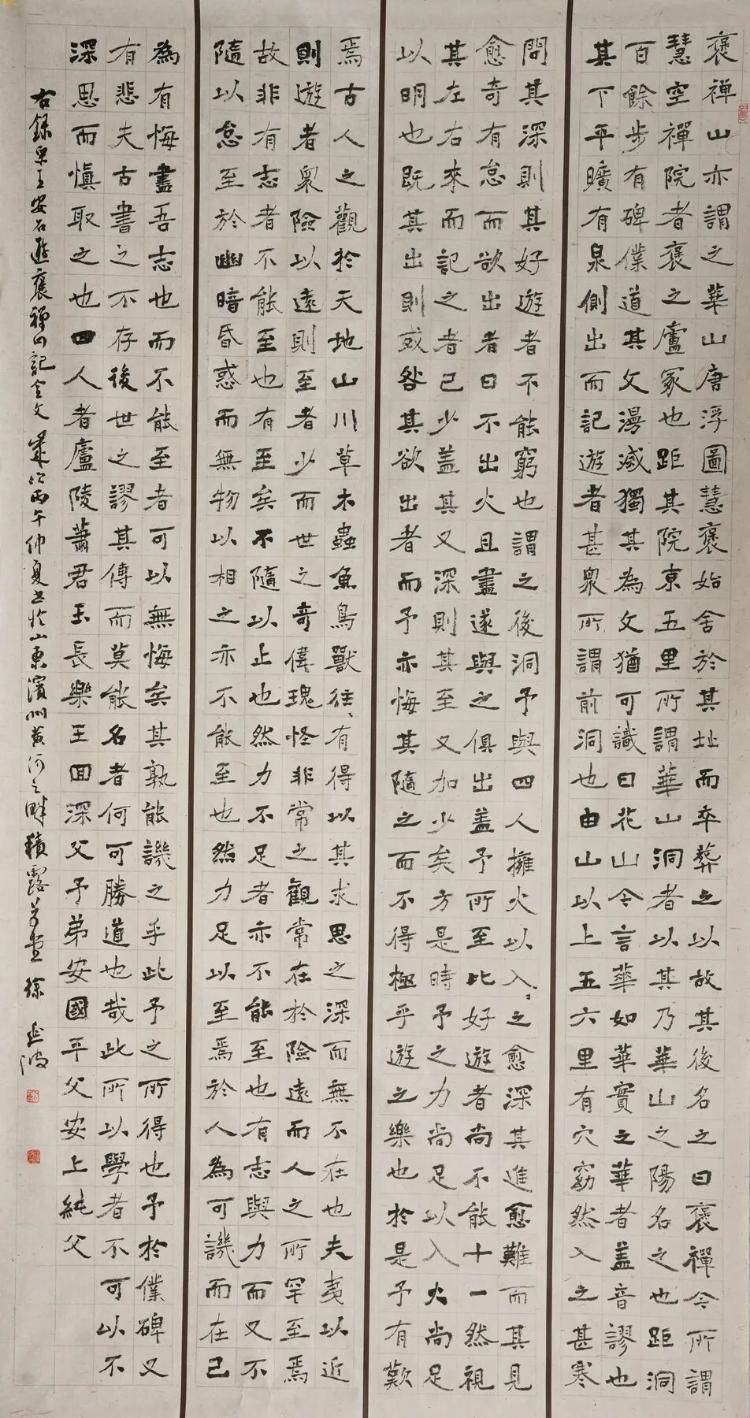 褒禪山亦謂之華山唐浮圖慧褒始舍於其址而卒葬之以故其後名之曰褒禪今所謂
慧空禪院者褒之廬冢也距其院東五里所謂華山洞者以其乃華山之陽名之也距洞
百餘步有碑僕道其文漫滅獨其為文猶可識曰花山今言華如華實之華者蓋音謬也
其下平曠有泉側出而記遊者甚眾所謂前洞也由山以上五六里有穴窈然入之甚寒
問其深則其好遊者不能窮也謂之後洞予與四人擁火以入〻之愈深其進愈難而其見
愈奇有怠而欲出者曰不出火且盡遂與之俱出蓋予所至比好遊者尚不能十一然視
其左右來而記之者已少蓋其又深則其至又加少矣方是時予之力尚足以入火尚足
以明也既其出則或咎其欲出者而予亦悔其隨之而不得極乎遊之樂也於是予有歎
焉古人之觀於天地山川草木蟲魚鳥獸往〻有得以其求思之深而無不在也夫夷以近
則遊者眾險以遠則至者少而世之奇偉瑰怪非常之觀常在於險遠而人之所罕至焉
故非有志者不能至也有至矣不隨以止也然力不足者亦不能至也有志與力而又不
隨以怠至於幽暗昏惑而無物以相之亦不能至也然力足以至焉於人為可譏而在己
為有悔盡吾志也而不能至者可以無悔矣其孰能譏之乎此予之所得也予於僕碑又
有悲夫古書之不存後世之謬其傳而莫能名者何可勝道也哉此所以學者不可以不
深思而慎取之也四人者廬陵蕭君玉長樂王回深父予弟安國平父安上純父
右錄宋王安石遊褒禪山記全文歲次丙午仲夏書於山東濱州黃河之畔積露草堂徐延波